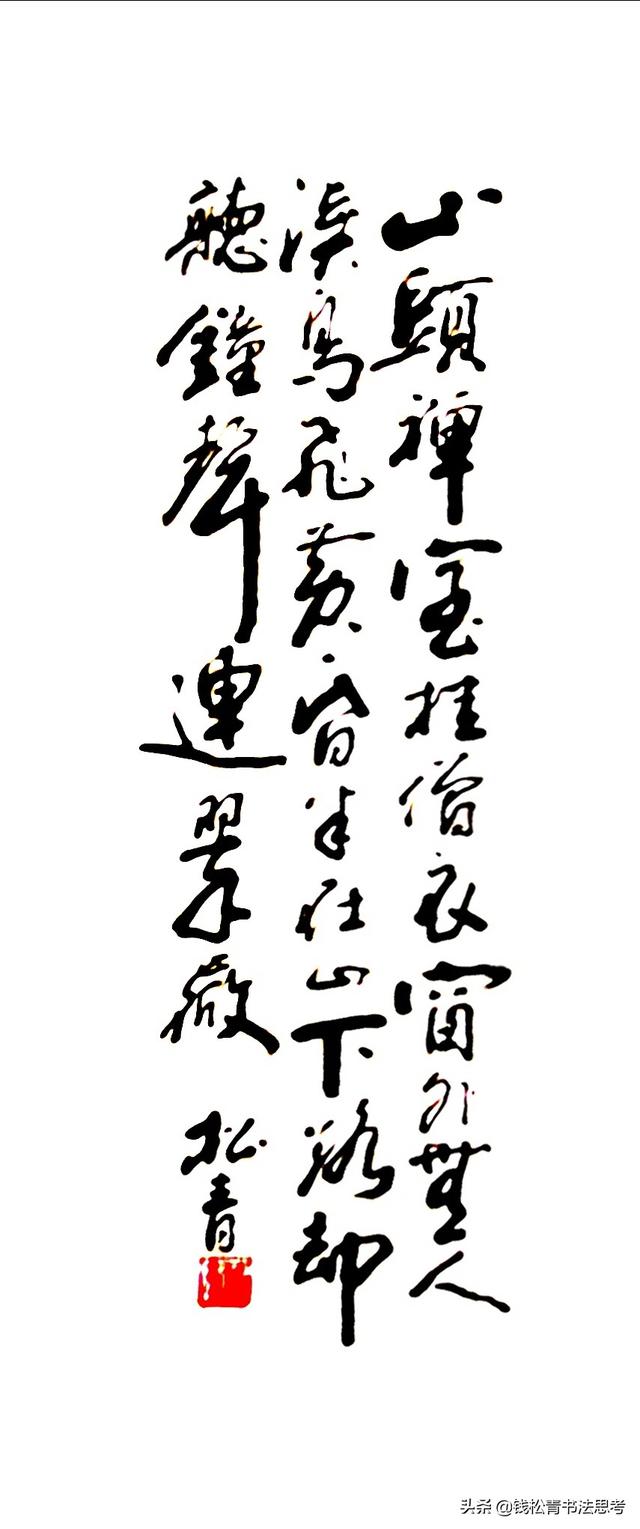 山頭禪室挂僧衣窗外無人
溪鳥飛黃昏半在山下路却
聽鐘聲連翠微
松青
头条@钱松青书法思考